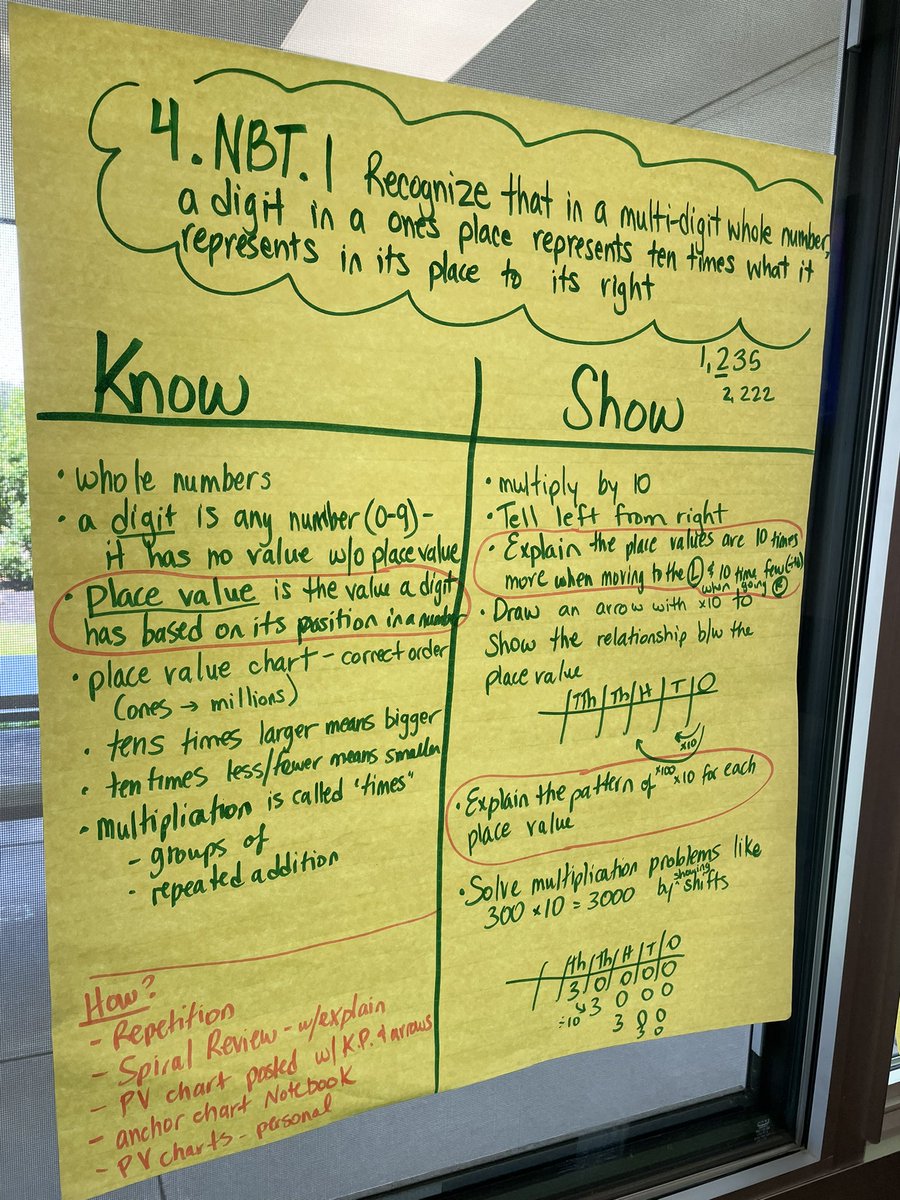 4.NBT.1 Recognize that in a multi-digit whole number,
a digit in a ones place represents ten times what it
represents in its place to its right
Know
• whole numbers
• a digit is any number (0-9) -
it has no value w/o place value
• place value is the value a digit
has based on its position in a number
• place value chart - correct order
(ones → millions)
• tens times larger means bigger
• ten times less/fewer means smaller
• multiplication is called "times"
- groups of
- repeated addition
How?
- Repetition
- Spiral Review - w/explain
- PV chart posted w/ K.P. & arrows
- anchor chart Notebook
- PV charts - personal
Show
1,235
2,222
• multiply by 10
• Tell left from right
• Explain the place values are 10 times
more when moving to the L & 10 time few
when going R
• Draw an arrow with x10 to
show the relationship b/w the
place value
TTh Th H T O
x10
x100
• Explain the pattern of x10 for each
place value
• Solve multiplication problems like
showing
300 x 10 = 3000 by shifts
Th H T O
3 0 0 0 0
÷10 3 0 0 0
3 0 0
3 0